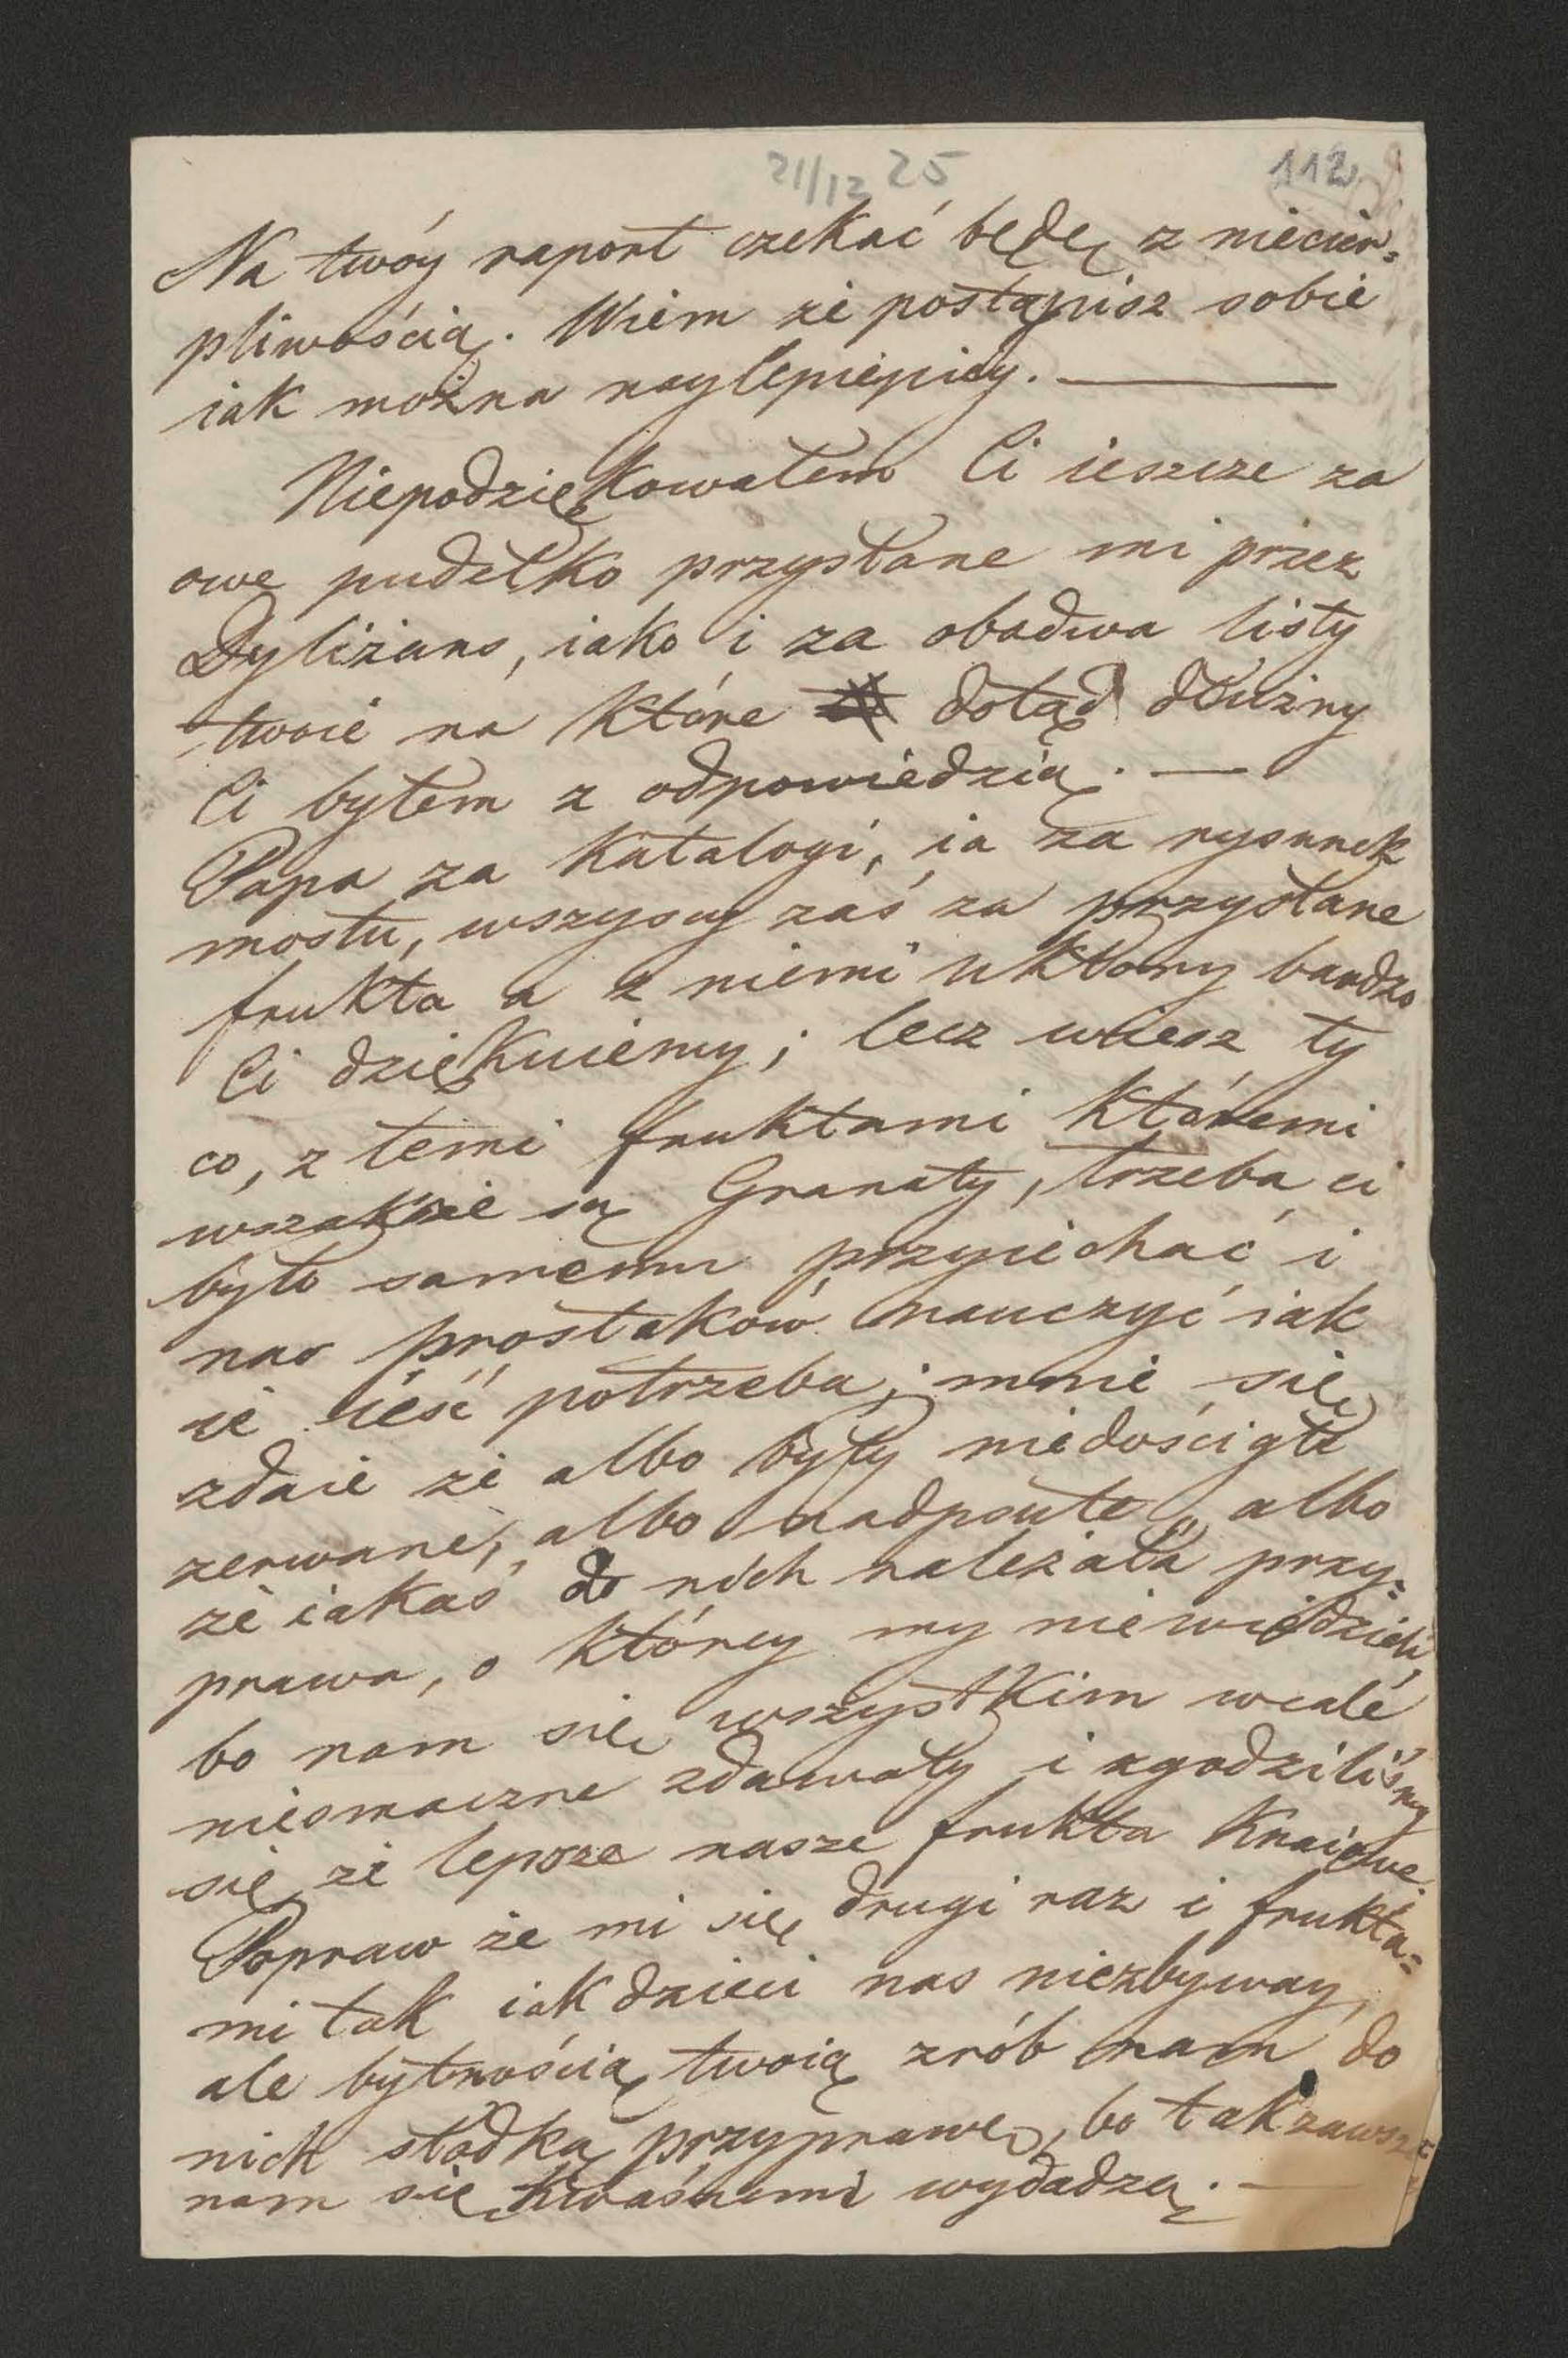 21/12 25
112
Na twóy raport czekać będę z niecier=
pliwością. Wiem że postąpisz sobie
iak można naylepiej
Niepodziękowałem Ci ieszcze za
owe pudełko przysłane mi przez
Dyliżans, iako i za obadwa listy
twoie na które dotąd dłużny
Ci byłem z odpowiedzią. —
Papa za Katalogi, ia za rysunek
mostu, wszyscy zaś za przysłane
frukta a z niemi ukłony bardzo
Ci dziękuiemy; lecz wiesz ty
co, z temi fruktami któremi
wszakże są Granaty, trzeba ci
było samemu przyiechać i
nas prostaków nauczyć iak
ie ieść potrzeba; mnie się
zdaie że albo były niedościgłe
zerwane, albo nadpsute, albo
że iakaś do nich należała przy=
prawa, o którey my niewiedzieli,
bo nam się wszystkim wcale
niesmaczne zdawały i zgodziliśmy
się że lepsze nasze frukta Kraiowe.
Popraw że mi się drugi raz i frukta=
mi tak iak dzieci nas niezbyway,
ale bytnością twoią zrób nam do
nich słodką przyprawę, bo tak zawsze
nam się kwaśnemi wydadzą. —